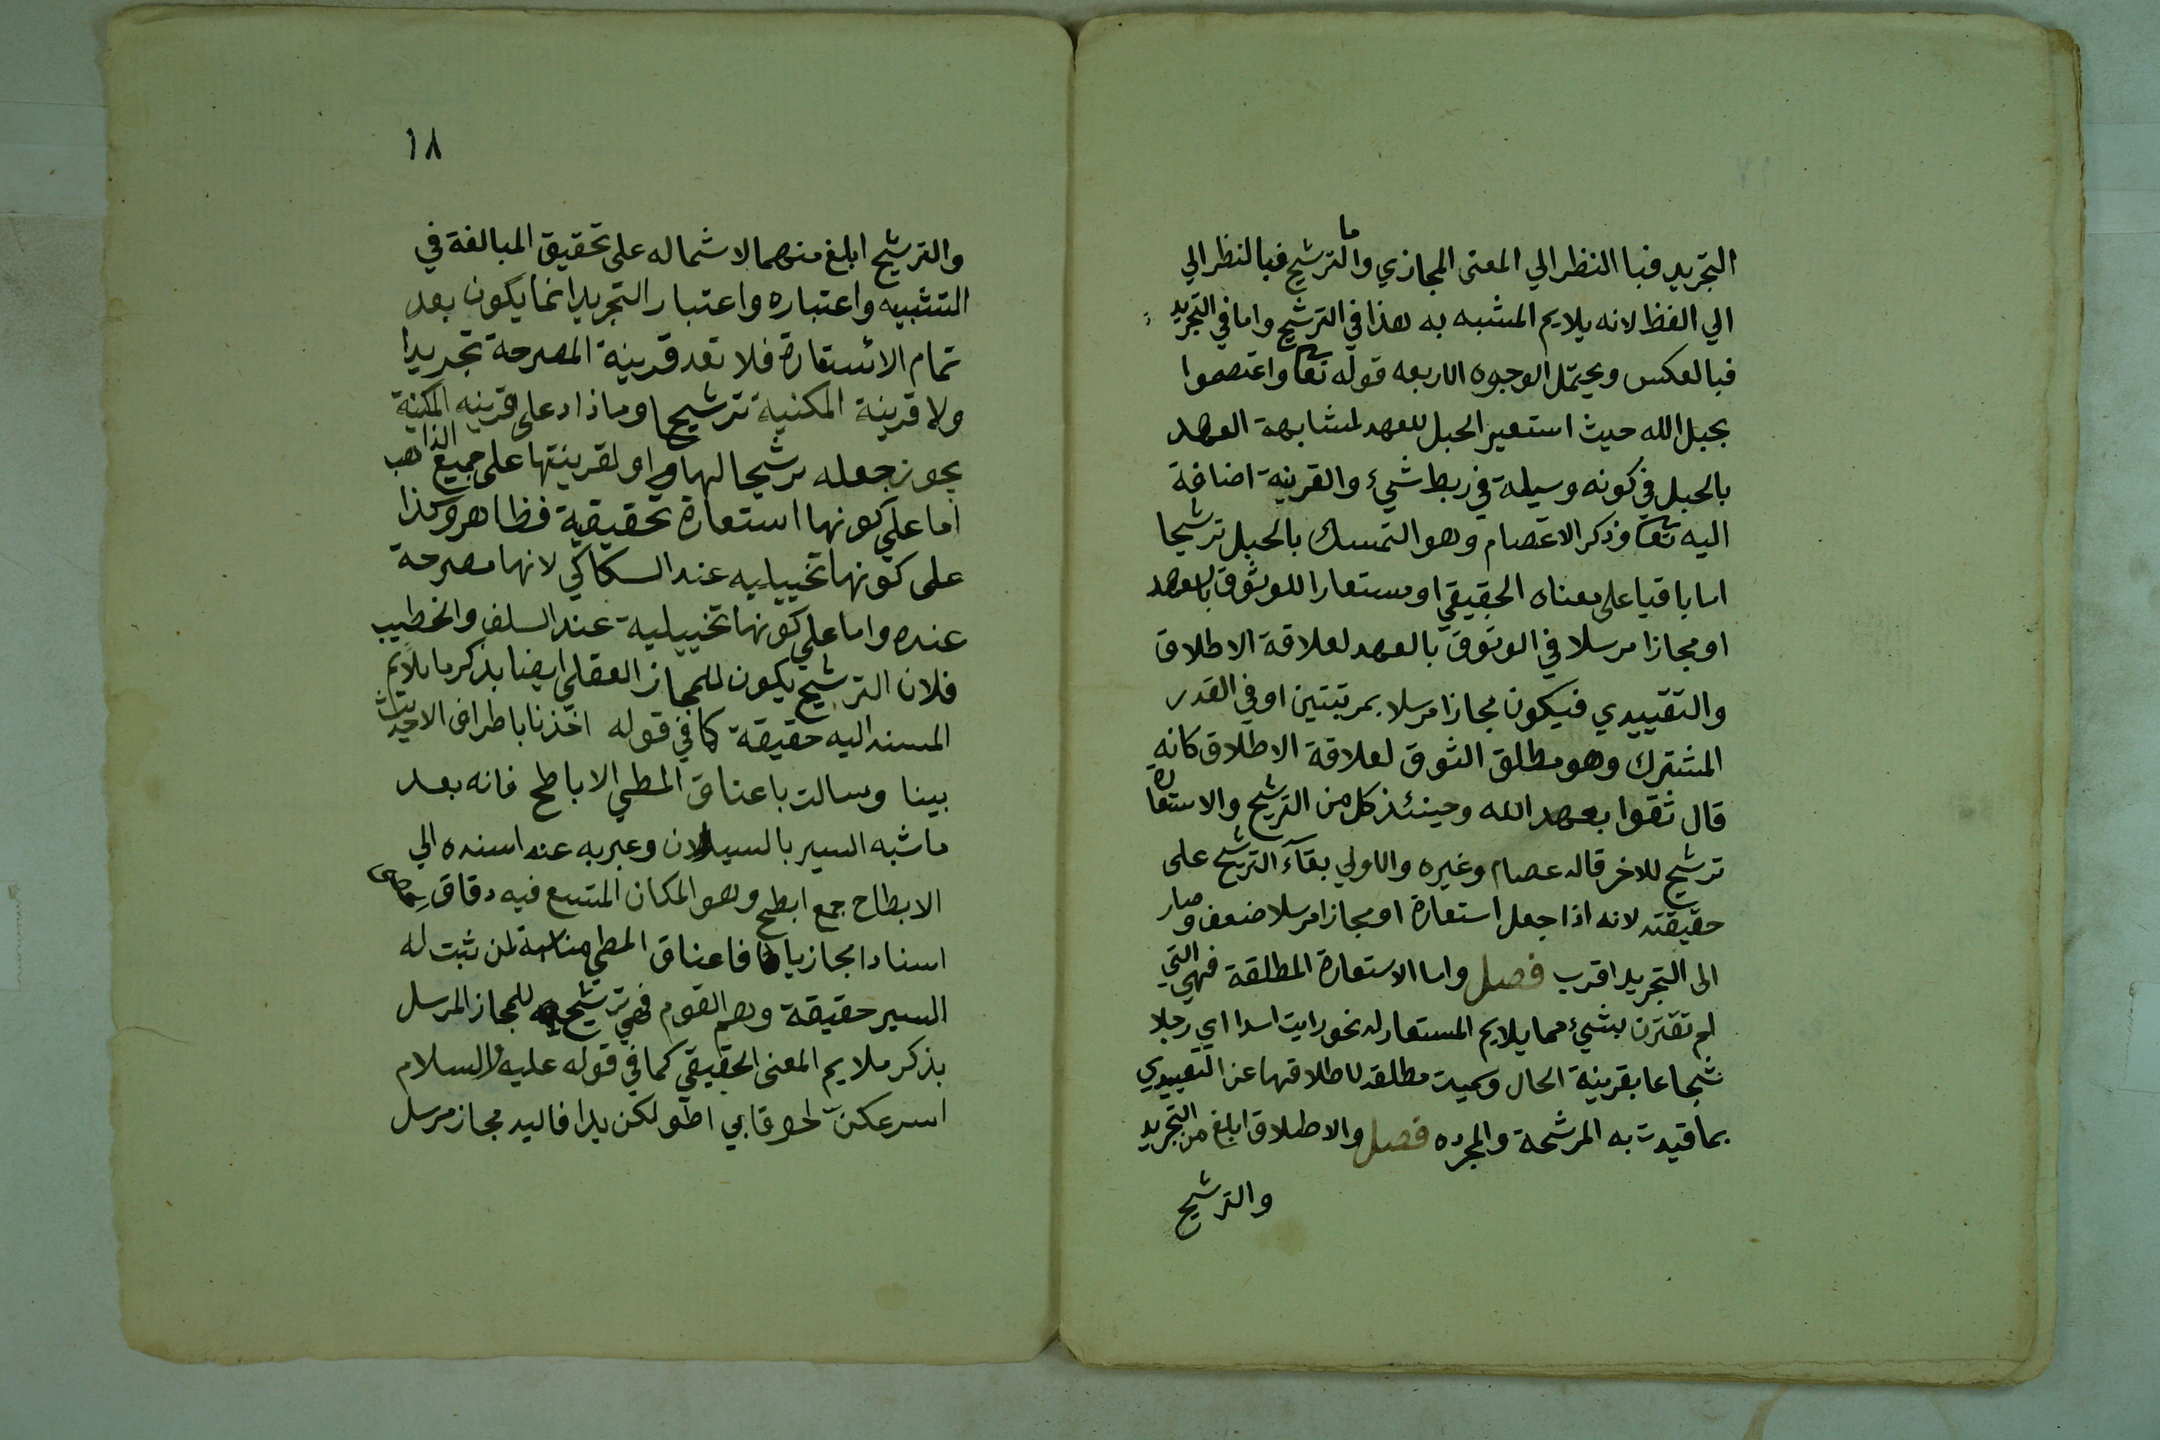 التجريد فبا النظر الي المعنى المجازي واما الترشيح فبالنظر الي
الي الفظ لانه يلايم المشبه به هذا في الترشيح واما في التجريد
فبالعكس ويحتمل الوجوه الاربعه قوله تعا واعتصموا
بحبل الله حيث استعير الحبل للعهد لمشابهة العهد
بالحبل في كونه وسيلة في ربط شيء والقرينة اضافة
اليه تعا وذكر الاعتصام وهو التمسك بالحبل ترشيحا
اما باقيا على معناه الحقيقي او مستعارا للوثوق بالعهد
او مجازا مرسلا في الوثوق بالعهد لعلاقة الاطلاق
والتقييدي فيكون مجازا مرسلا بمرتبتين او في القدر
المشترك وهو مطلق الثوق لعلاقة الاطلاق كانه
قال ثقوا بعهد الله وحينئذ كل من الترشيح والاستعارة
ترشيح للاخر قاله عصام وغيره والاولي بقآء الترشيح على
حقيقته لانه اذا جعل استعارة او مجازا مرسلا ضعف وصار
الى التجريد اقرب فصل واما الاستعارة المطلقة فهي التي
لم تقترن بشيء مما يلايم المستعار له نحو رايت اسدا اي رجلا
شجاعا بقرينة الحال وسميت مطلقه لاطلاقها عن التقييدي
بما قيدت به المرشحة والمجرده فصل والاطلاق ابلغ من التجريد
والترشيح
١٨
والترشيح ابلغ منهما لاشماله على تحقيق المبالغة في
التشبيه واعتباره واعتبار التجريد انما يكون بعد
تمام الاستعارة فلا تعد قرينة المصرحة تجريدا
ولا قرينة المكنية ترشيحا وما زاد على قرينه المكنية
يجوز جعله ترشيحا لها او لقرينتها على جميع المذاهب
اما علي كونها استعارة تحقيقية فظاهر وكذا
على كونها تخييليه عند السكاكي لانها مصرحة
عنده واما علي كونها تخييلية عند السلف والخطيب
فلان الترشيح يكون للمجاز العقلي ايضا بذكر ما يلايم
المسند اليه حقيقة كما في قوله اخذنا باطراف الاحديث
بيننا وسالت باعناق المطي الاباطح فانه بعد
ما شبه السير بالسيلان وعبر به عند اسنده الي
الابطاح جمع ابطح وهو المكان المتسع فيه دقاق
اسنادا مجازيا فاعناق المطي مناسبة لمن ثبت له
السير حقيقة وهم القوم فهي ترشيح للمجاز المرسل
بذكر ملايم المعنى الحقيقي كما في قوله عليه السلام
اسرعكن لحوقا بي اطولكن يدا فاليد مجاز مرسل